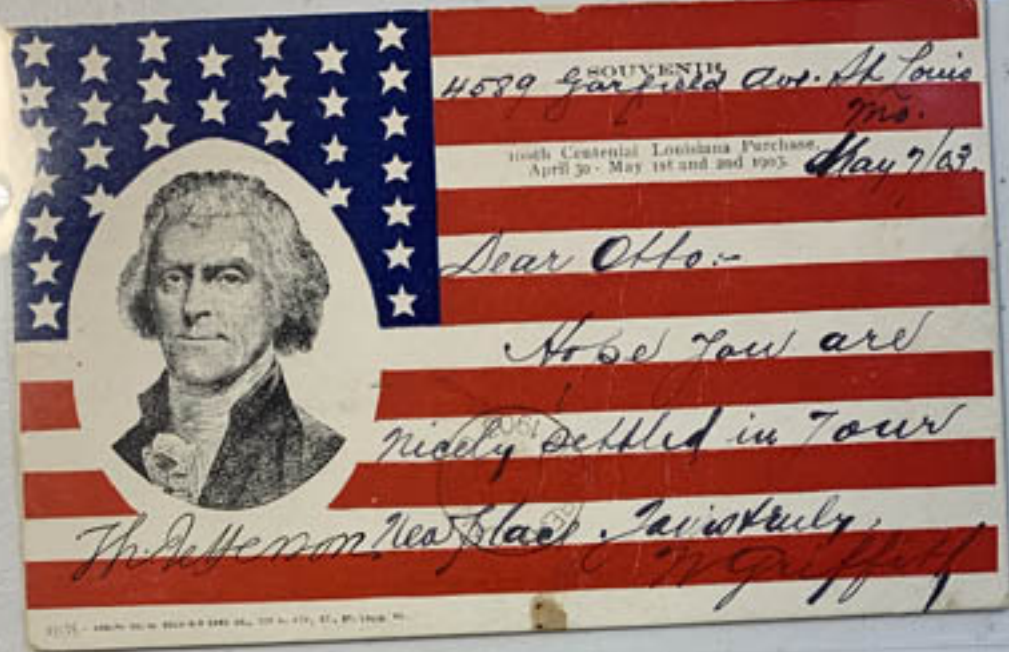 SOUVENIR
4589 Garfield Ave. St Louis
Mo.
100th Centenial Louisiana Purchase.
April 30 - May 1st and 2nd 1903.
May 7/03.
Dear Otto:-
Hope you are
nicely settled in your
1903
new place. Yours truly,
W Griffith
Th. Jefferson